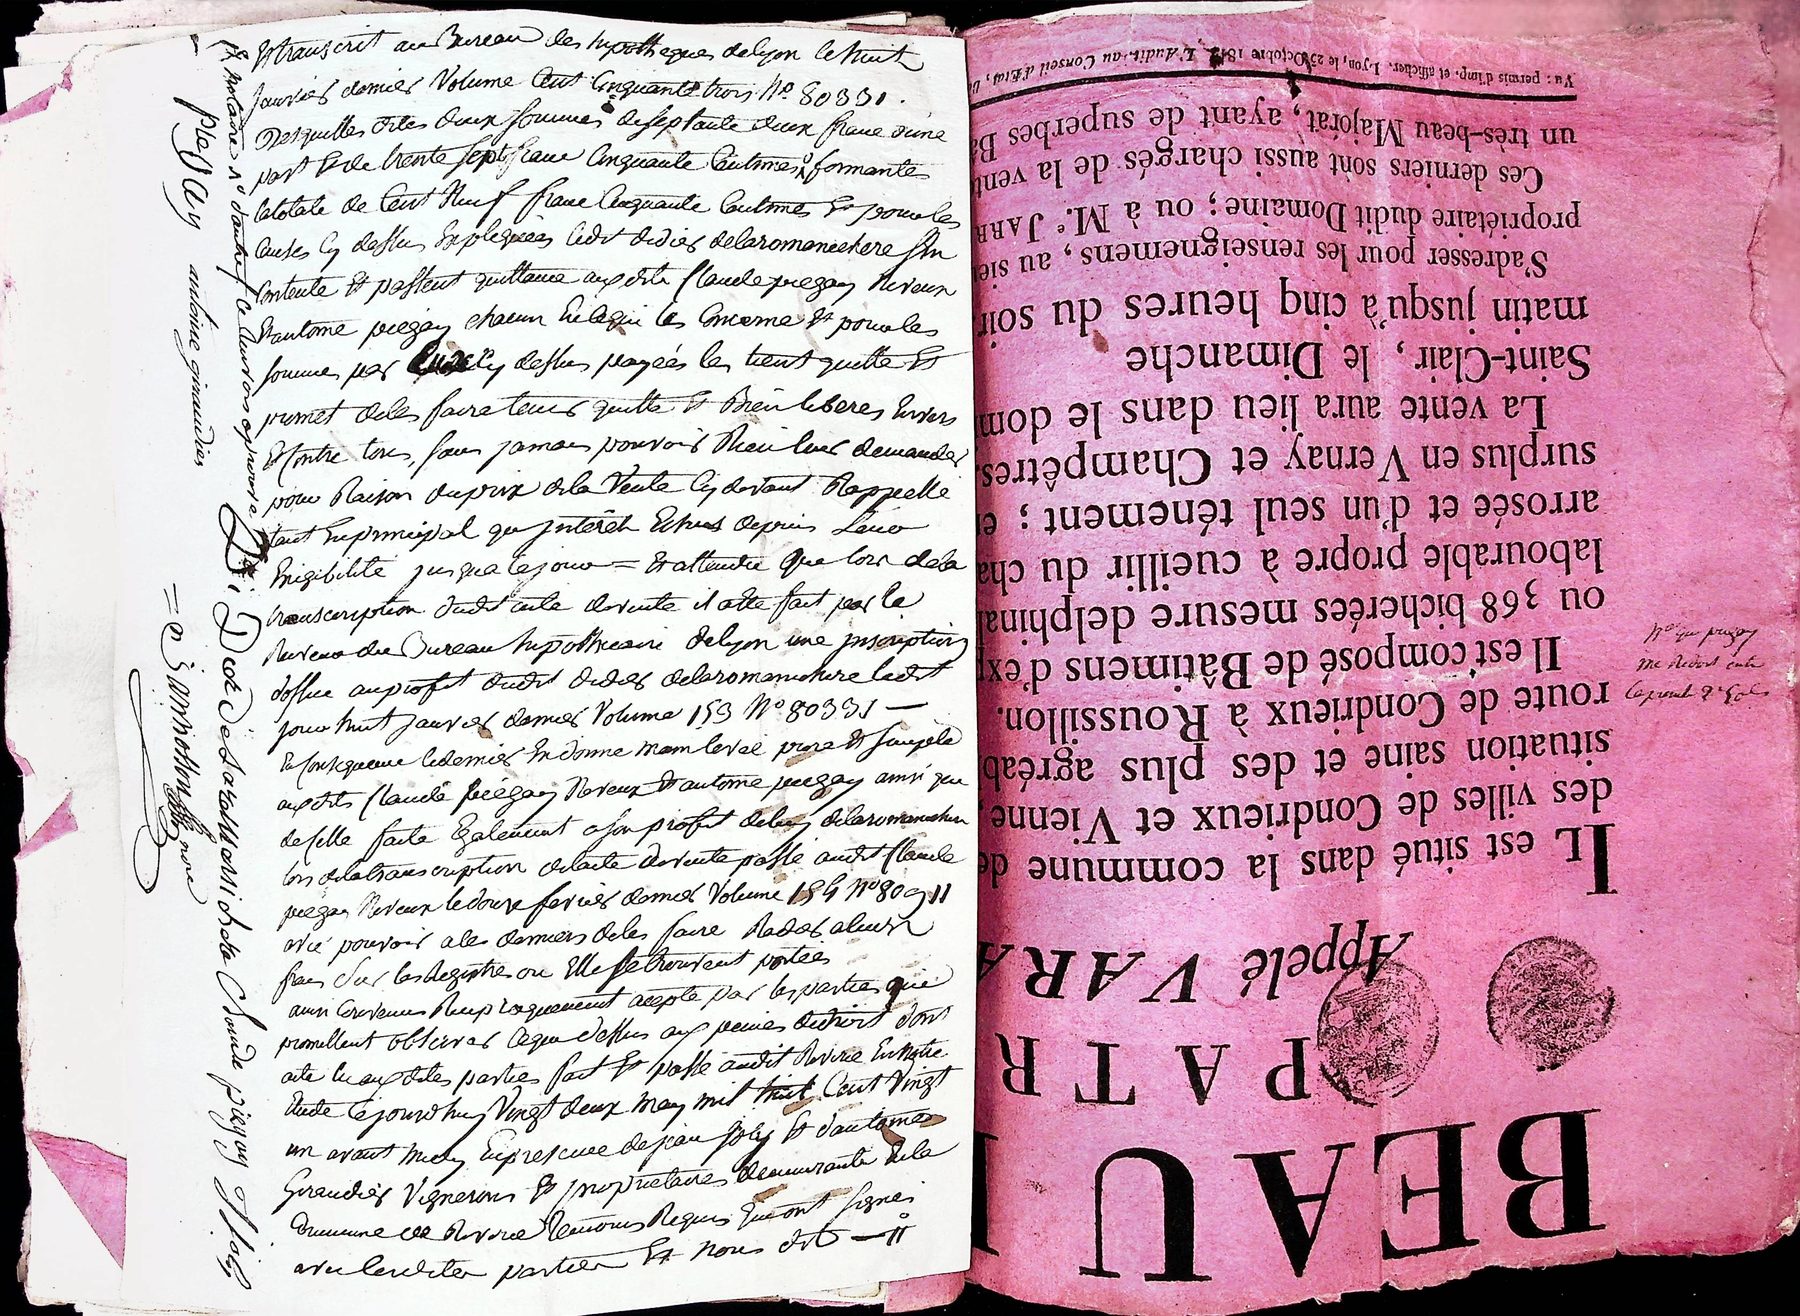 Et transcrit au Bureau des hypotheques de lyon le huit
janvier dernier Volume Cent Cinquante trois No 80331.
Desquelles dites deux sommes de septante deux franc d'une
part Et de trente sept franc Cinquante Centimes formantes
la totale de Cent Neuf franc Cinquante Centimes Et pour les
causes Cy dessus Expliquées ledit didier delaromanechere
Contente Et passent quittance auxdits Claude piegay Neveux
Et antoine piegay chacun En ce qui les Concerne Et pour les
sommes par Cy dessus payées les tient quitte Et
promet de les faire tenir quitte Et Bien liberes Envers
Et Contre tous, sans jamais pouvoir Rien leur demander
pour Raison du prix de la Vente Cy devant Rappellé
tant En principal qu'interêts Echus depuis Leur
Exigibilité jusqu'à ce jour = Et attendu que lors de la
transcription dudit acte de vente il a été fait par le
du Bureau hypothecaire de lyon une inscription
d'office au profit dudit didier delaromanechere ledit
jour huit janvier dernier Volume 153 No 80331 —
En Consequence ledernier En donne main levée pure Et simple
auxdits Claude piégay Neveux Et antoine piegay ainsi que
de Celle faite Egalement a son profit de luy delaromanechere
lors de la transcription de l'acte de vente passé audit Claude
piegay Neveux le douze fevrier dernier Volume 154 No 80911
avec pouvoir a les derniers de les faire Rader a leurs
frais Sur les Registres ou Elle se trouvent portées
ainsi Convenu Reciproquement accepté par les parties qui
promettent observer Ce que dessus aux peines de droit dont
acte lu aux dites parties fait Et passé audit Riverie En Notre
Etude Ce jourd'huy Vingt deux may mil huit Cent Vingt
un avant midy En presence de jean Joly Et d'antoine
Giraudier Vignerons Et proprietaires demeurants de la
Commune de Riverie temoins Requis qui ont signé
avec lesdites parties Et nous dit —
Claude piegay
piegay antoine giraudier
Vu : permis d'imp. et afficher. Lyon, le 25 Octobre 1812, L'Audit. au Conseil d'Etat,
un très-beau Majorat, ayant de superbes B
Ces derniers sont aussi chargés de la vent
propriétaire dudit Domaine ; ou à Me. JARR
S'adresser pour les renseignemens, au sie
matin jusqu'à cinq heures du soir
Saint-Clair, le Dimanche
La vente aura lieu dans le dom
surplus en Vernay et Champêtres.
arrosée et d'un seul ténement ; e
labourable propre à cueillir du cha
ou 368 bicherées mesure delphinal
Il est composé de Bâtimens d'exp
route de Condrieux à Roussillon.
situation saine et des plus agréab
des villes de Condrieux et Vienne,
IL est situé dans la commune de
Appelé VARA
PATR
BEAU